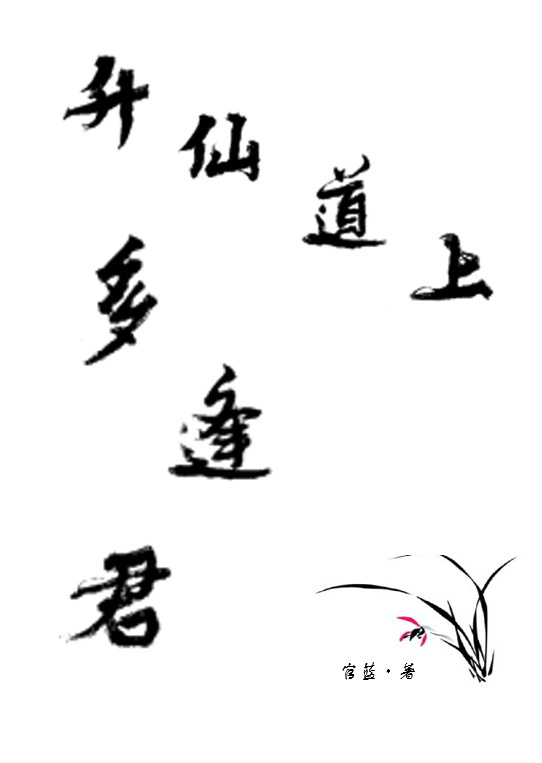 升仙道上
多逢
君
官蓝·著